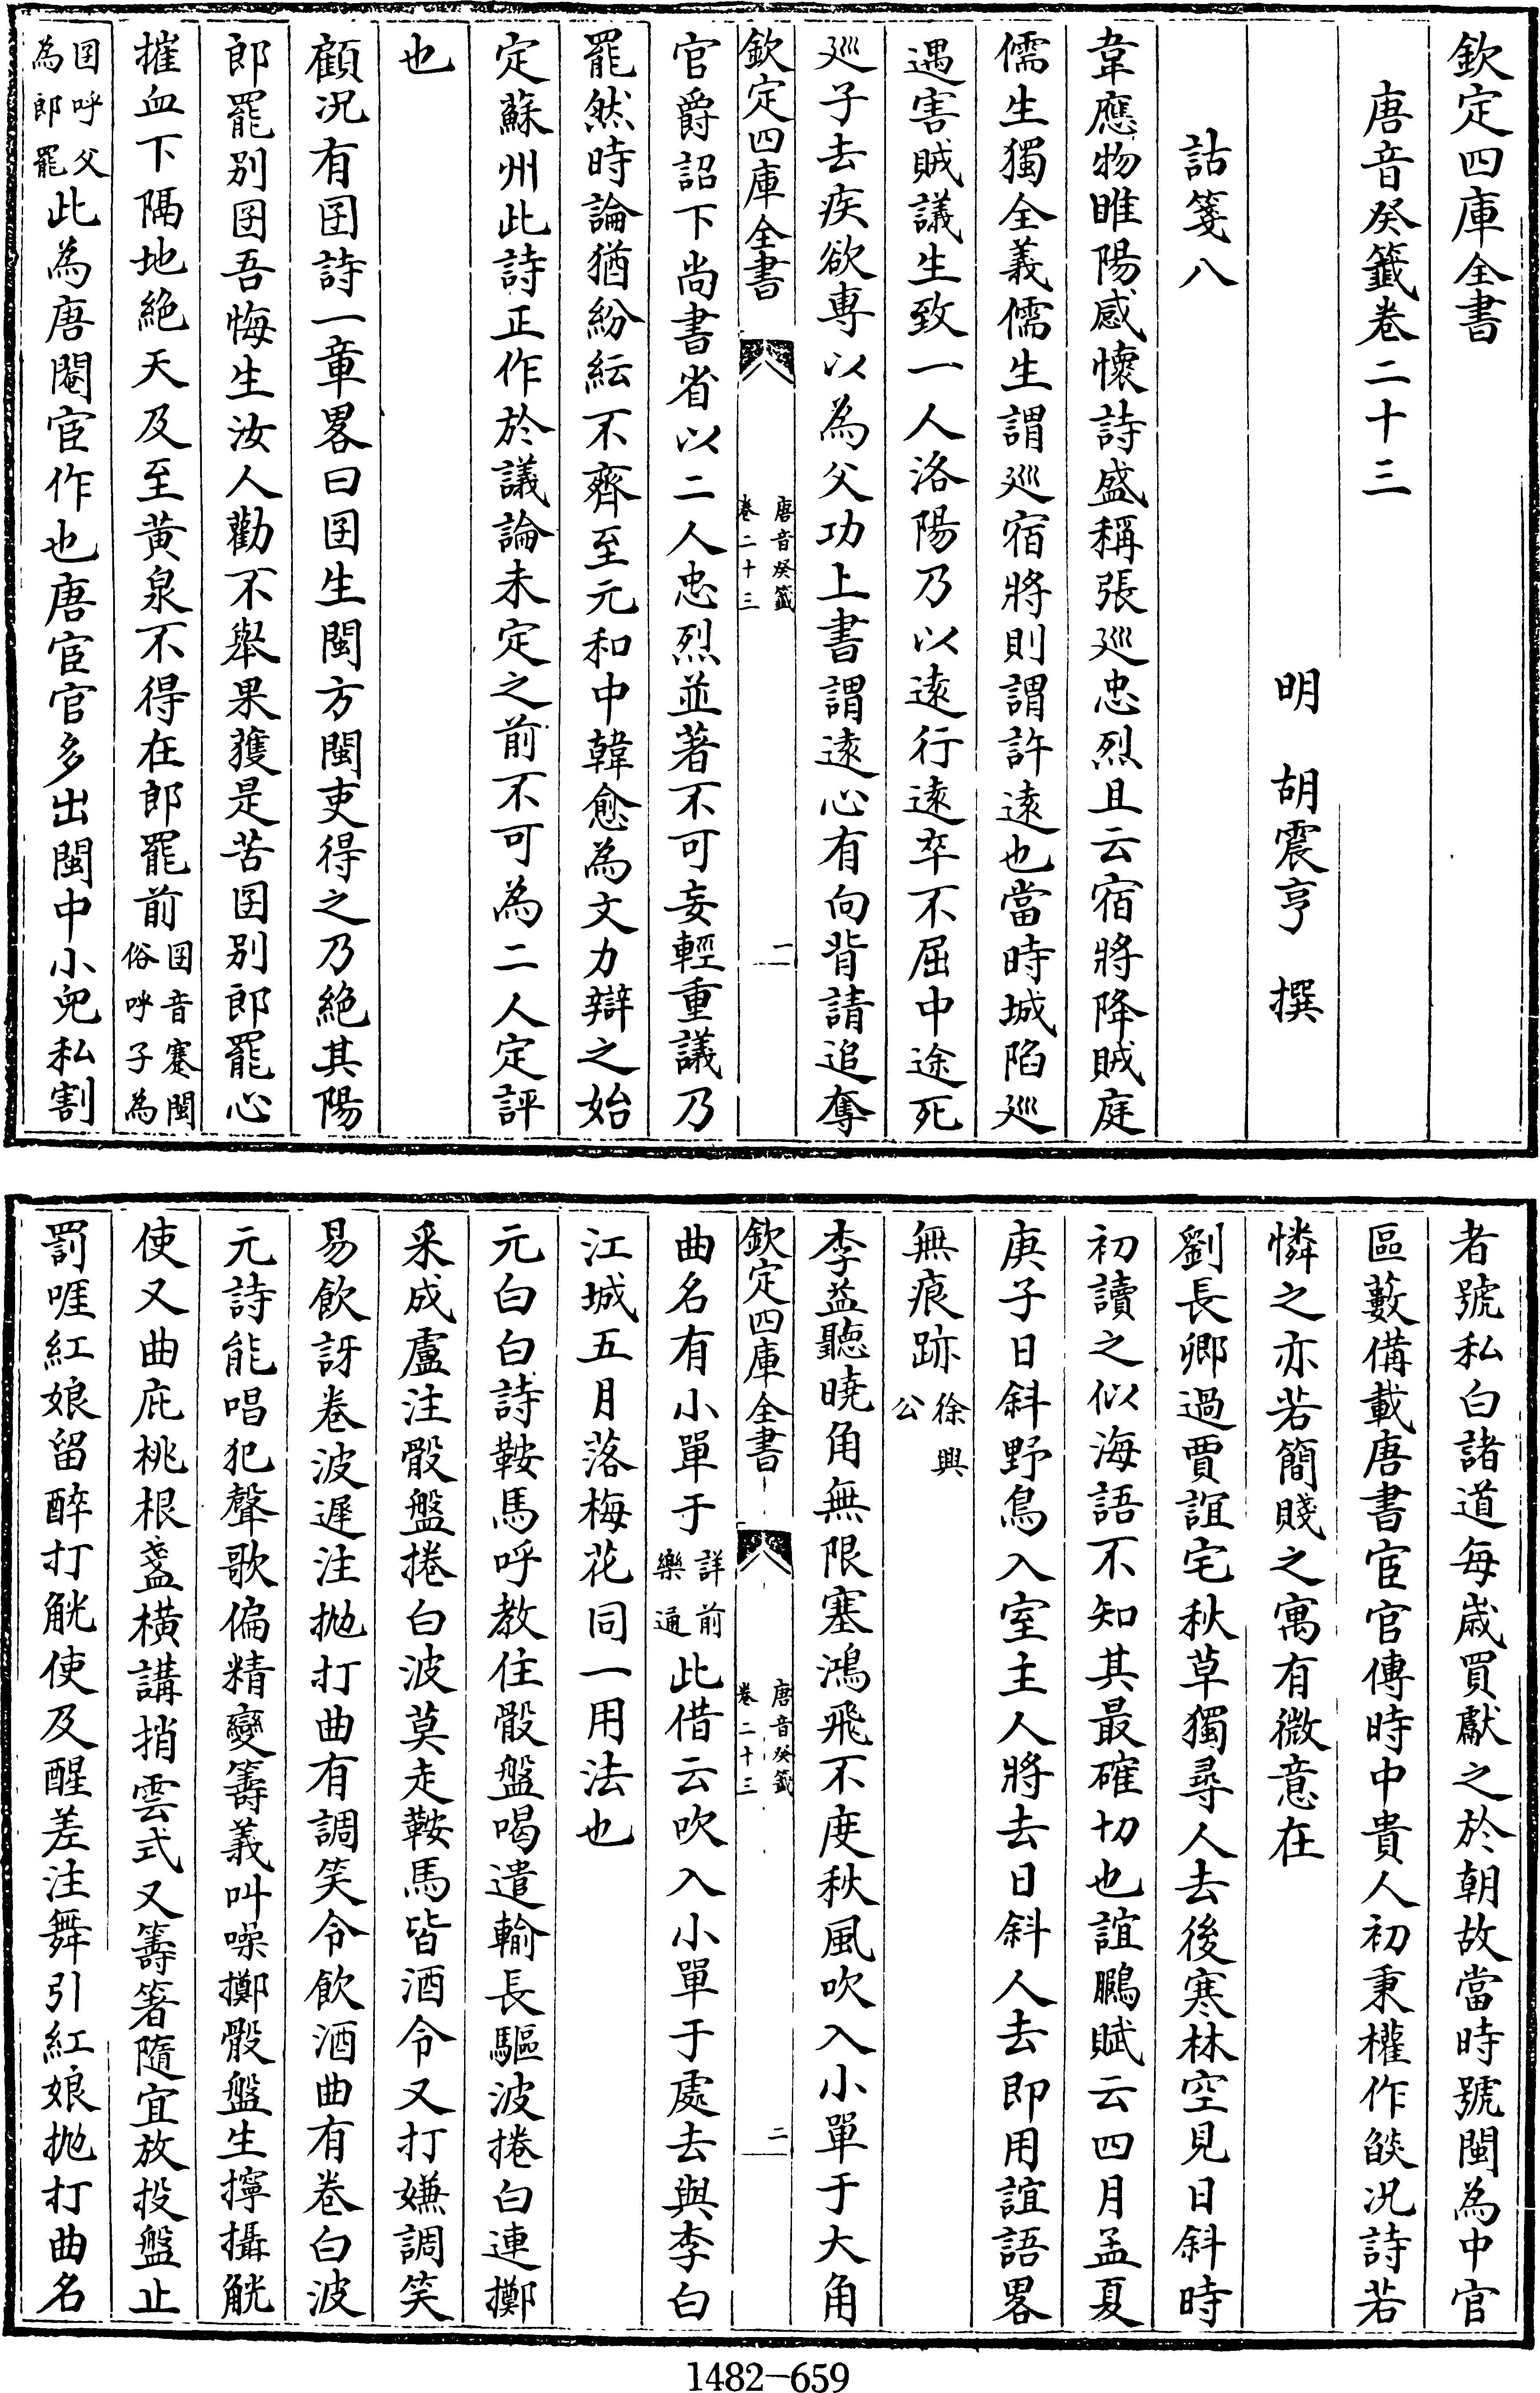 欽定四庫全書
唐音癸籤卷二十三
明　胡震亨　撰
詁箋八
韋應物睢陽感懷詩盛稱張廵忠烈且云宿將降賊庭
儒生獨全義儒生謂廵宿將則謂許逺也當時城陷廵
遇害賊議生致一人洛陽乃以逺行逺卒不屈中途死
廵子去疾欲專以為父功上書謂逺心有向背請追奪
欽定四庫全書
唐音癸籤
卷二十三
一
官爵詔下尚書省以二人忠烈並著不可妄輕重議乃
罷然時論猶紛紜不齊至元和中韓愈為文力辯之始
定蘇州此詩正作於議論未定之前不可為二人定評
也
顧况有囝詩一章畧曰囝生閩方閩吏得之乃絶其陽
郎罷别囝吾悔生汝人勸不舉果獲是苦囝别郎罷心
摧血下隔地絶天及至黄泉不得在郎罷前囝音蹇閩俗呼子為
囝呼父為郎罷此為唐閹宦作也唐宦官多出閩中小兒私割
者號私白諸道每歲買獻之於朝故當時號閩為中官
區藪備載唐書宦官傳時中貴人初秉權作燄况詩若
憐之亦若簡賤之寓有微意在
劉長卿過賈誼宅秋草獨尋人去後寒林空見日斜時
初讀之似海語不知其最確切也誼鵩賦云四月孟夏
庚子日斜野鳥入室主人將去日斜人去即用誼語畧
無痕跡徐興公
李益聽曉角無限塞鴻飛不度秋風吹入小單于大角
欽定四庫全書
唐音癸籤
卷二十三
二
曲名有小單于詳前樂通此借云吹入小單于處去與李白
江城五月落梅花同一用法也
元白白詩鞍馬呼教住骰盤喝遣輸長驅波捲白連擲
采成盧注骰盤捲白波莫走鞍馬皆酒令又打嫌調笑
易飲訝卷波遲注抛打曲有調笑令飲酒曲有卷白波
元詩能唱犯聲歌偏精變籌義叫噪擲骰盤生擰攝觥
使又曲庇桃根盞橫講捎雲式又籌箸隨宜放投盤止
罰啀紅娘留醉打觥使及醒差注舞引紅娘抛打曲名
1482-659